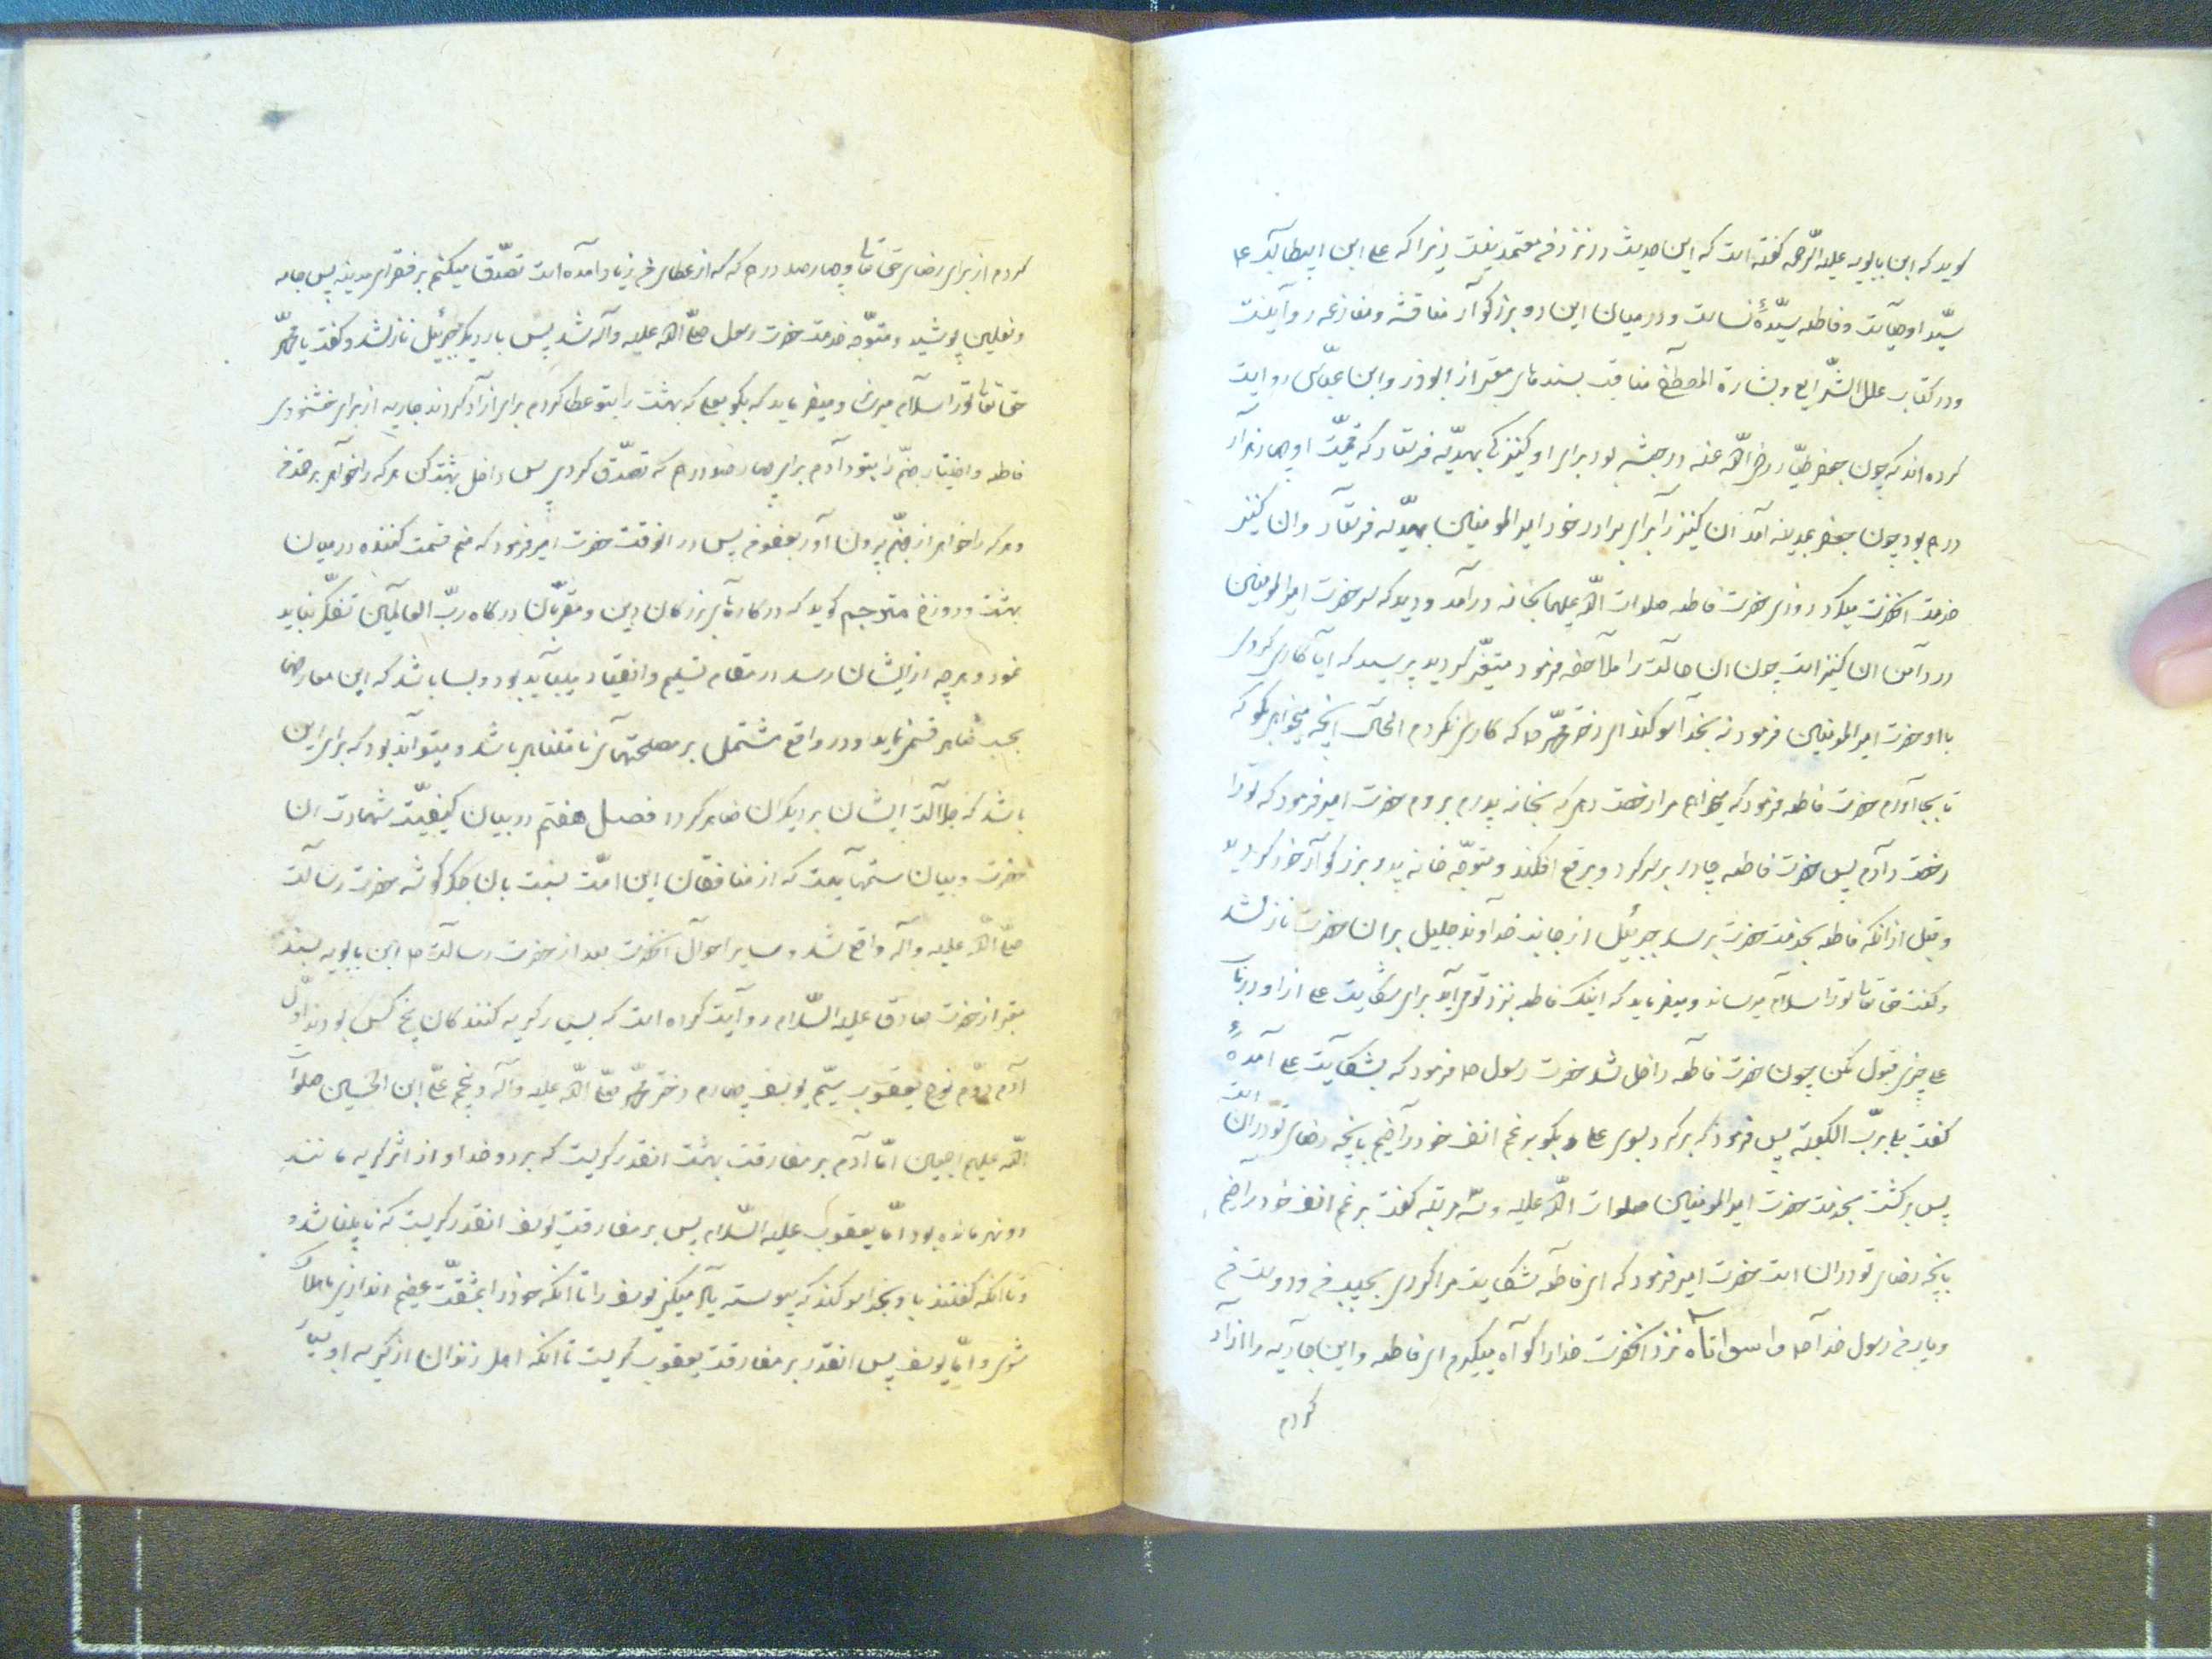 گوید که ابن بابویه علیه الرّحمه گفته است که این حدیث در نزد من معتمد نیست زیرا که علی ابن ابیطالب ع
سیّد اوصیآست و فاطمه سیّدهٔ نسا است و در میان این دو بزرگوار مناقشه و منازعه روا نیست
و در کتاب علل الشّرایع و بشارة المصطفی مناقب بسندهای معتبر از ابوذر و ابن عبّاس روایت
کرده اند که چون جعفر طیّار رضی اللّه عنه در حبشه بود برای او کنیزکی بهدیّه فرستاد که قیمت او چهار هزار
درهم بود چون جعفر بمدینه آمد ان کنیز را برای برادر خود امیرالمومنین بهدیّه فرستاد و ان کنیز
خدمت انحضرت میکرد روزی حضرت فاطمه صلوات اللّه علیها بخانه درآمد و دید که سر حضرت امیرالمومنین
در دامن ان کنیز است چون ان حالت را ملاحضه فرمود متغیّر گردید پرسید که آیا کاری کردی
با او حضرت امیرالمومنین فرمود نه بخدا سوکند ای دختر محمّد ص که کاری نکردم الحال انچه میخواهی بگو که
تا بجا آورم حضرت فاطمه فرمود که میخواهم مرا رخصت دهی که بخانه پدرم بروم حضرت امیر فرمود که تو را
رخصت دادم پس حضرت فاطمه چادر بر سر کرد و برقع افکند و متوجّه خانه پدر بزرگوار خود گردید
و قبل از انکه فاطمه بخدمت حضرت برسد جبرئیل از جانب خداوند جلیل بر ان حضرت نازل شد
و گفت حق تعالی تو را سلام میرساند و میفرماید که اینک فاطمه بنزد تو می آید برای شکایت علی از او در باب
علی چیزی قبول مکن چون حضرت فاطمه داخل شد حضرت رسول ص فرمود که بشکایت علی آمدهٔ
گفت بلی بربّ الکعبه پس فرمود که برگرد بسوی علی و بگو برغم انف خود راضیم بانچه رضای تو در ان است
پس برگشت بخدمت حضرت امیرالمومنین صلوات اللّه علیه و سه مرتبه گفت برغم انف خود راضیم
بانچه رضای تو در ان است حضرت امیر فرمود که ای فاطمه شکایت مرا کردی بحبیب من و دوست من
و یار من رسول خدا ص واسواتاه نزد انحضرت خدا را گواه میگیرم ای فاطمه و این جاریه را ازاد
کردم
کردم از برای رضای حق تعالی و چهار صد درهم که که از عطای من زیاد آمده است تصدّق میکنم بر فقرای مدینه پس جامه
و نعلین پوشید و متوجّه خدمت حضرت رسول صلّی اللّه علیه وآله شد پس بار دیگر جبرئیل نازل شد و گفت یا محمّد
حق تعالی تو را سلام میرساند و میفرماید که بگو بعلی که بهشت را بتو عطا کردم برای ازاد کردن جاریه از برای خشنودی
فاطمه و اختیار جهنّم را بتو دادم برای چهار صد درهم که تصدّق کردی پس داخل بهشت کن هر که را خواهی برحمت من
و هر که را خواهی از جهنّم بیرون آور بعفو من پس در انوقت حضرت امیر فرمود که منم قسمت کننده در میان
بهشت و دوزخ مترجم گوید که در کارهای بزرگان دین و مقربّان درگاه ربّ العالمین تفکّر نباید
نمود و هر چه از ایشان رسد در مقام تسلیم و انقیاد میباید بود و بسا باشد که این معارضه
بحسب ظاهر قسمی نماید و در واقع مشتمل بر مصلحتهای نامتناهی باشد و میتواند بود که برای این
باشد که جلالت ایشان بر دیگران ظاهر گردد فصل هفتم در بیان کیفیّت شهادت ان
حضرت و بیان ستمهاییست که از منافقان این امّت نسبت بان جگرگوشه حضرت رسالت
صلّی اللّه علیه وآله واقع شد و سایر احوال انحضرت بعد از حضرت رسالت ص ابن بابویه بسند
معتبر از حضرت صادق علیه السّلام روایت کرده است که بسیار گریه کنندکان پنج کس بودند اوّل
آدم دوّم یعقوب سیّم یوسف چهارم دختر محمّد صلّی اللّه علیه وآله و پنجم علیّ ابن الحسین صلوات
اللّه علیهم اجمعین امّا آدم بر مفارقت بهشت انقدر گریست که بر دو خد او از اثر گریه مانند
دو نهر مانده بود امّا یعقوب علیه السّلام پس بر مفارقت یوسف انقدر گریست که نابینا شد و
و تا انکه گفتند با و بخدا سوکند که پیوسته یاد میکنی یوسف را تا انکه خود را بمشقّت عضیم اندازی یا هلاک
شوی و امّا یوسف پس انقدر بر مفارقت یعقوب گریست تا انکه اهل زندان از گریه او